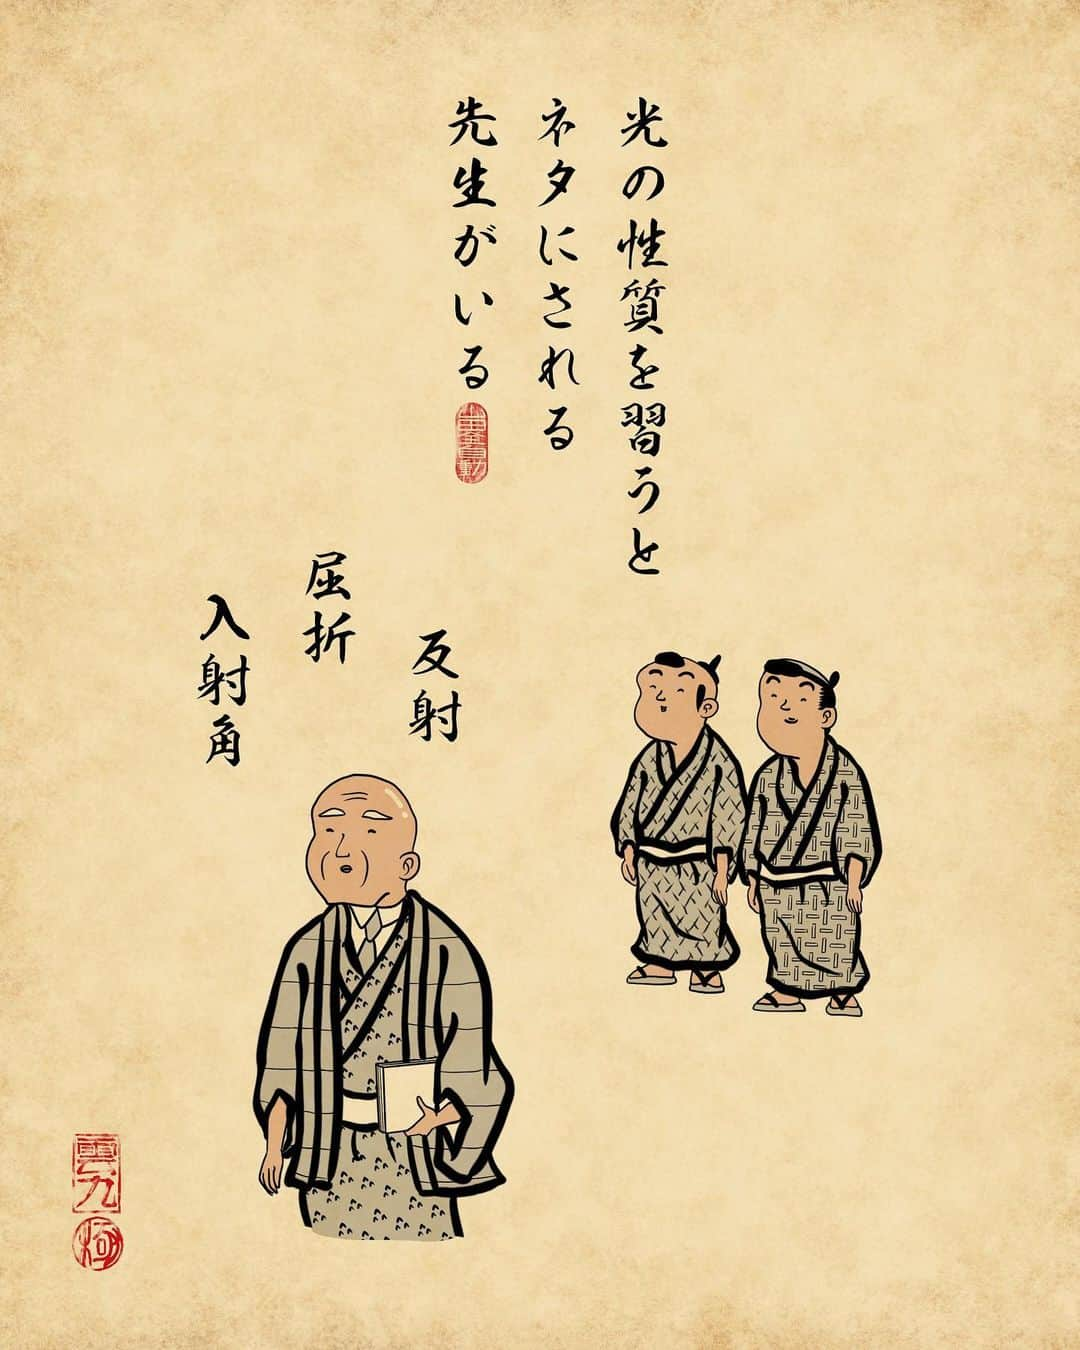 光の性質を習うと
ネタにされる
先生がいる
反射
屈折
入射角